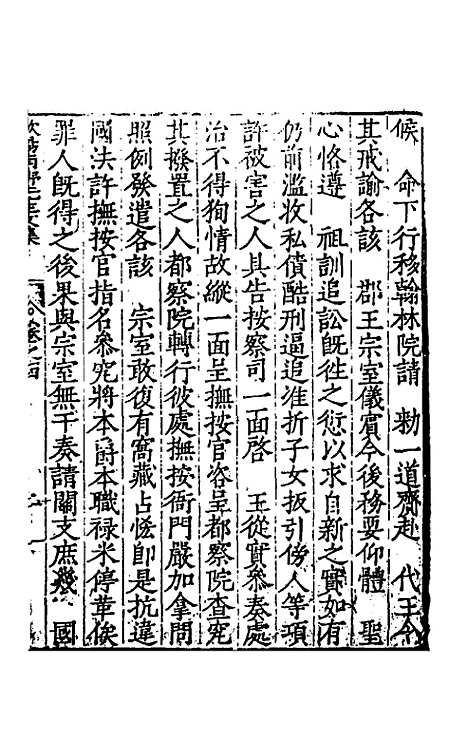 候　命下行移翰林院請　勑一道齎赴　代王令
其戒諭各該　郡王宗室儀賓今後務要仰體　聖
心恪遵　祖訓追訟既徃之愆以求自新之實如有
仍前濫收私債酷刑逼追准折子女扳引傍人等項
許被害之人具告按察司一面啓　王從實叅奏處
治不得狥情故縱一面呈撫按官咨呈都察院查究
其撥置之人都察院轉行彼處撫按衙門嚴加拿問
照例發遣各該　宗室敢復有窩藏占恡即是抗違
國法許撫按官指名叅究將本爵本職祿米停革俟
罪人既得之後果與宗室無干奏請關支庶幾　國